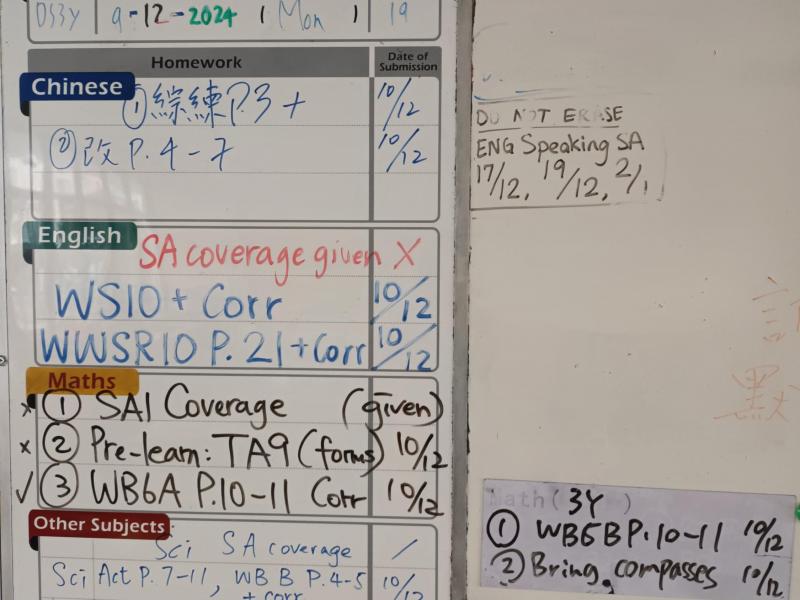 DS3Y 9-12-2024 ( Mon ) 19
Homework Date of Submission
Chinese
① 綜練P.3 + 10/12
② 改 P.4-7 10/12
English
SA coverage given X
WS10 + Corr 10/12
WWSR10 P.21 + Corr 10/12
Maths
x ① SA1 Coverage (given)
x ② Pre-learn: TA9 (forms) 10/12
✓ ③ WB6A P.10-11 Corr 10/12
Other Subjects
Sci SA coverage /
Sci Act P.7-11, WB B P.4-5 10/12
+ corr
DO NOT ERASE
ENG Speaking SA
17/12, 19/12, 2/1
Math ( 3Y )
① WB6B P.10-11 10/12
② Bring compasses 10/12